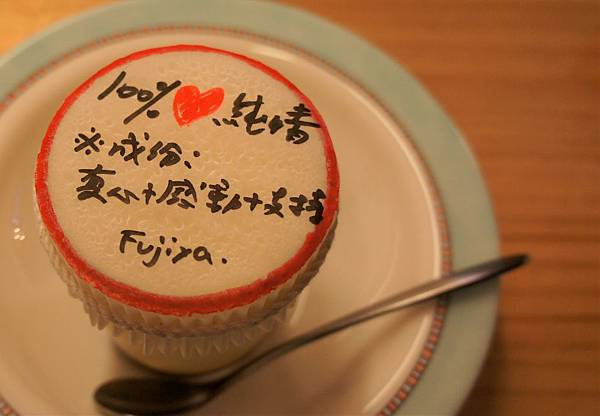 100%❤純情
※成份:
真心+感動+支持
Fujiya.